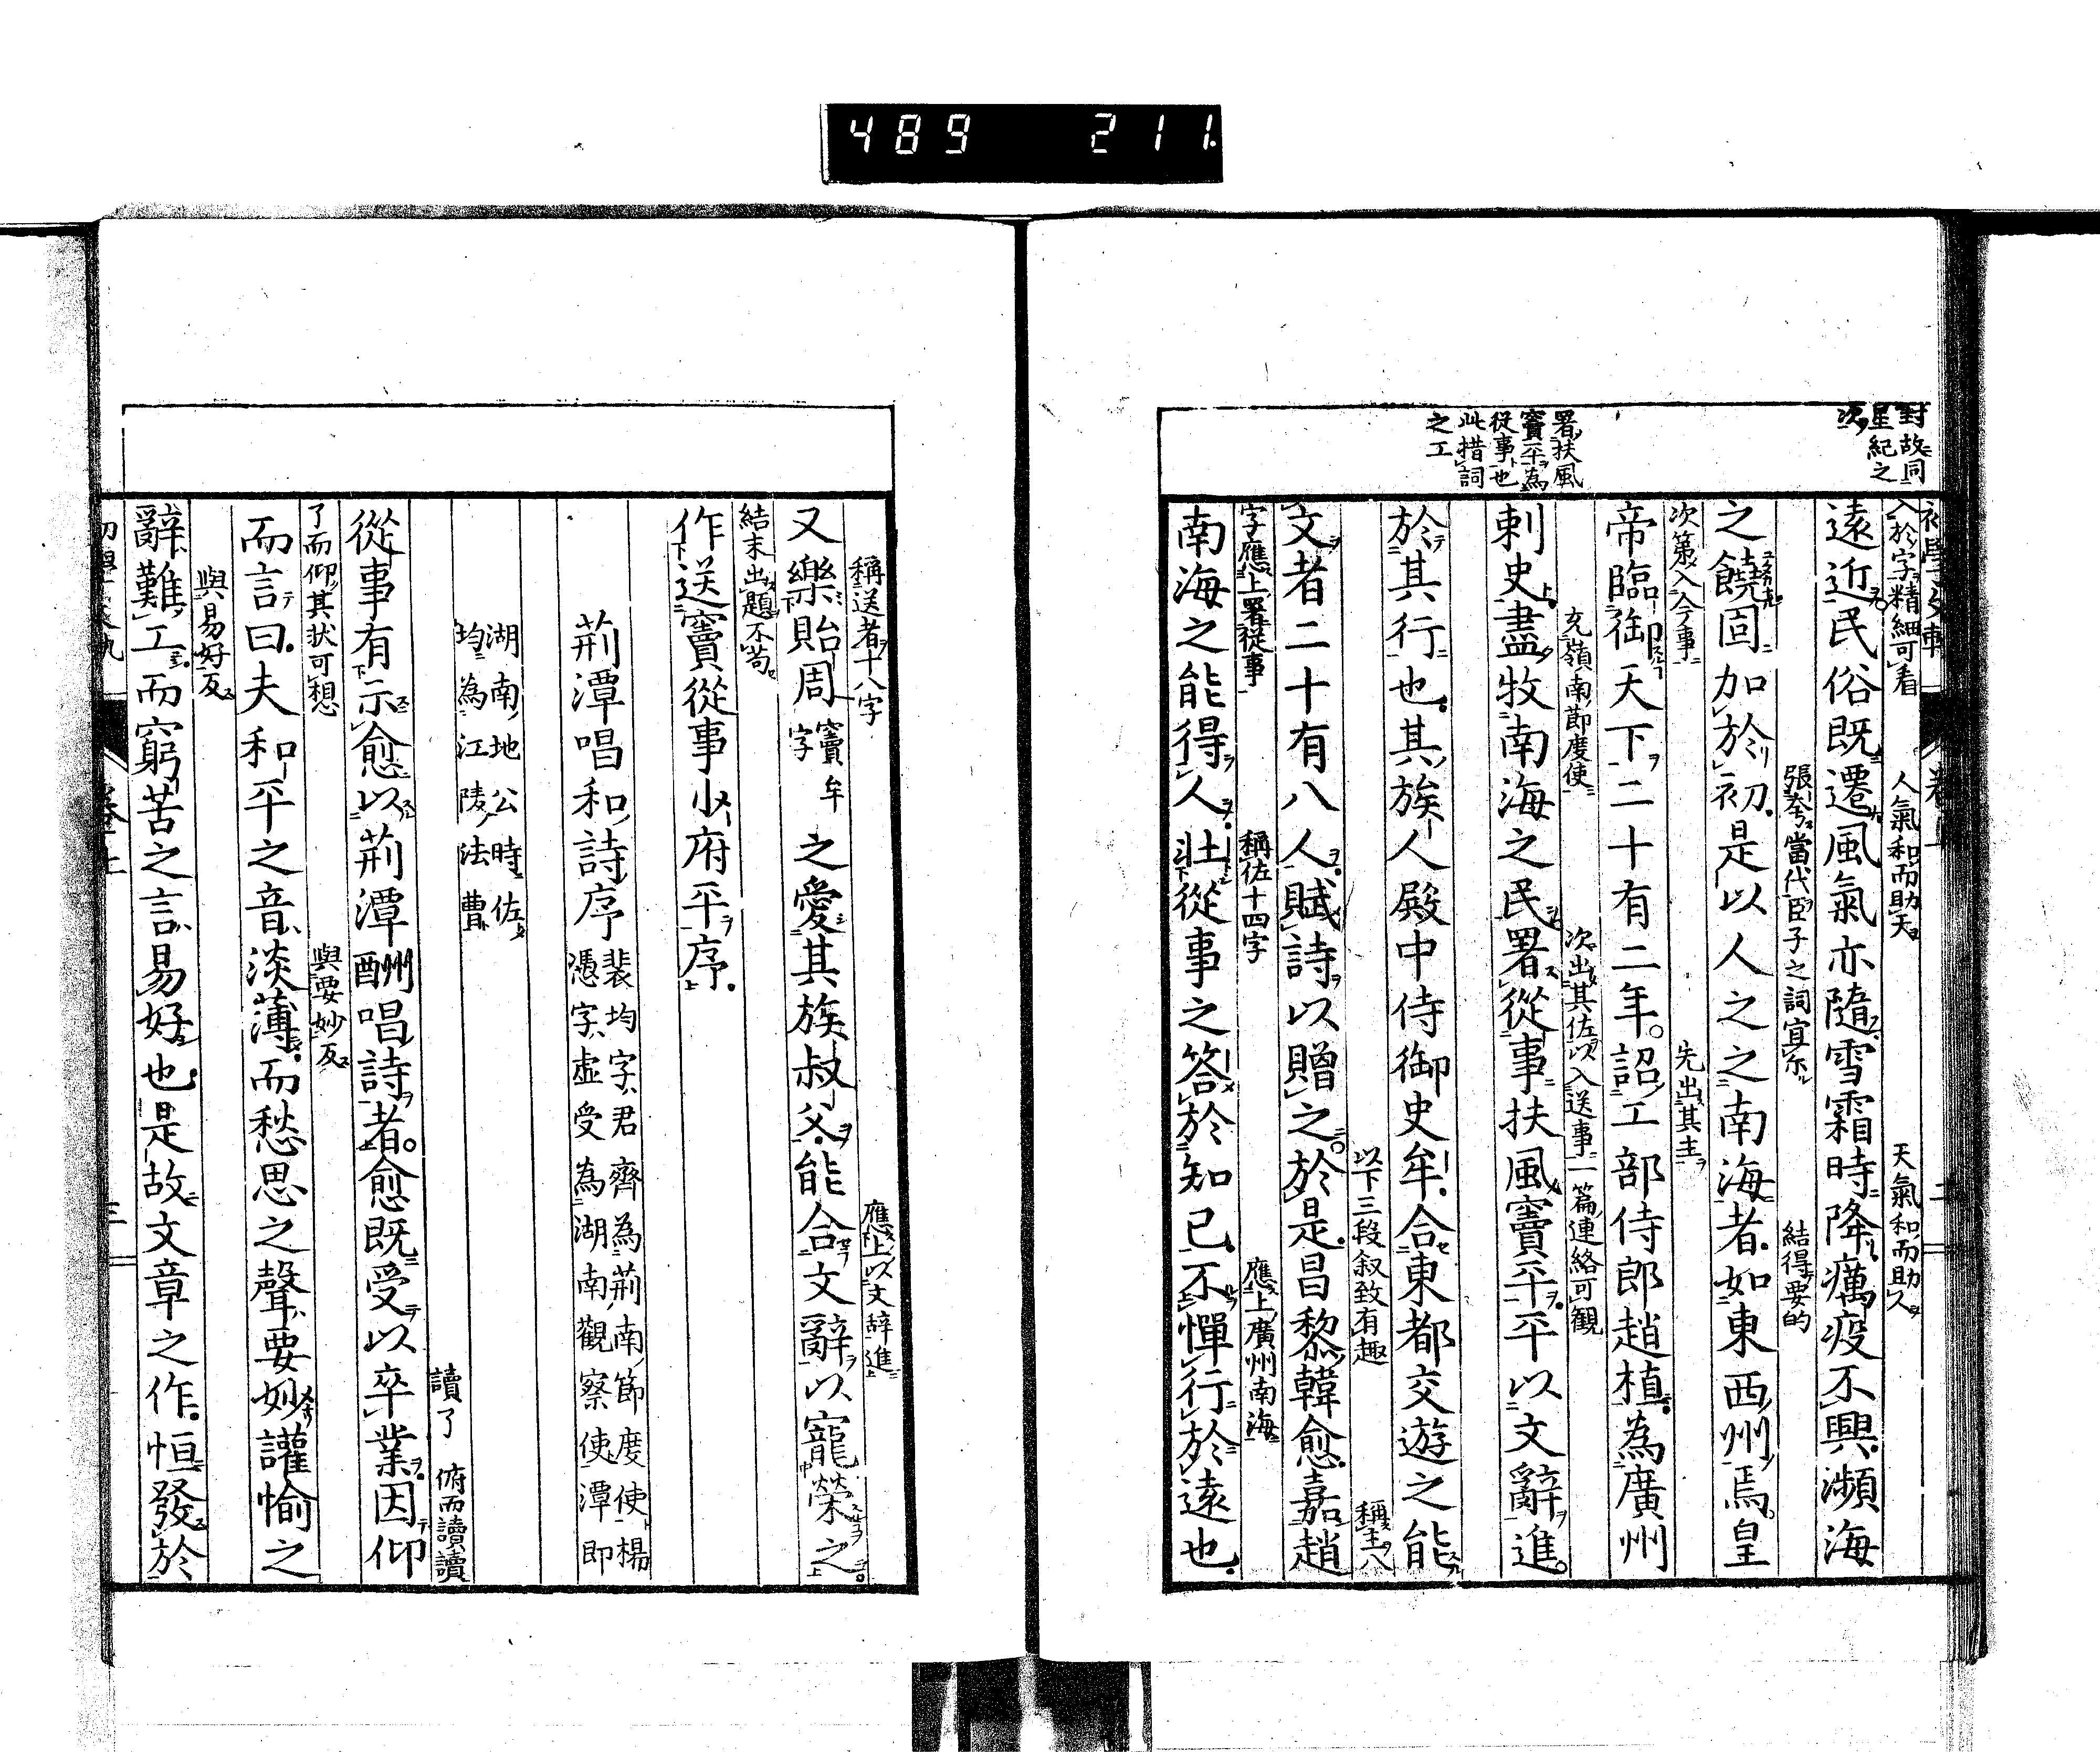 489 211.
封故同
星紀之
次
署扶風
竇平為
從事也
此措詞
之工
入於字精細可看 人氣和而助天 天氣和而助人
遠近民俗既遷風氣亦隨雪霜時降癘疫不興瀕海
張夸當代臣子之詞宜尓 結得要的
之饒固加於初是以人之之南海者如東西州焉皇
次第入今事 先出其主
帝臨御天下二十有二年詔工部侍郎趙植為廣州
充嶺南節度使 次出其佐以入送事一篇連絡可觀
刺史盡牧南海之民署從事扶風竇平平以文辭進
於其行也其族人殿中侍御史牟合東都交遊之能
以下三段叙致有趣 稱主八
文者二十有八人賦詩以贈之於是昌黎韓愈嘉趙
字應上署從事 稱佐十四字 應上廣州南海
南海之能得人壯從事之答於知已不憚行於遠也
稱送者十八字 應上以文辞進
又樂貽周竇牟字之愛其族叔父能合文辭以寵榮之
結末出題不苟
作送竇從事少府平序
荊潭唱和詩序 裴均字君齊為荊南節度使楊
憑字虚受為湖南觀察使潭即
湖南地公時佐
均為江陵法曹
讀了 俯而讀讀
從事有示愈以荊潭酬唱詩者愈既受以卒業因仰
了而仰其状可想 與要妙反
而言曰夫和平之音淡薄而愁思之聲要妙讙愉之
與易好反
辭難工而窮苦之言易好也是故文章之作恒發於